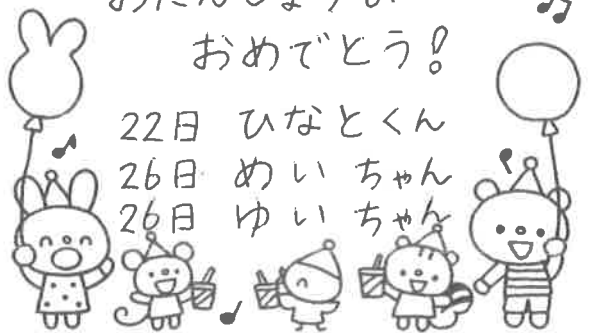 おたんじょうび
おめでとう!
22日 ひなとくん
26日 めいちゃん
26日 ゆいちゃん